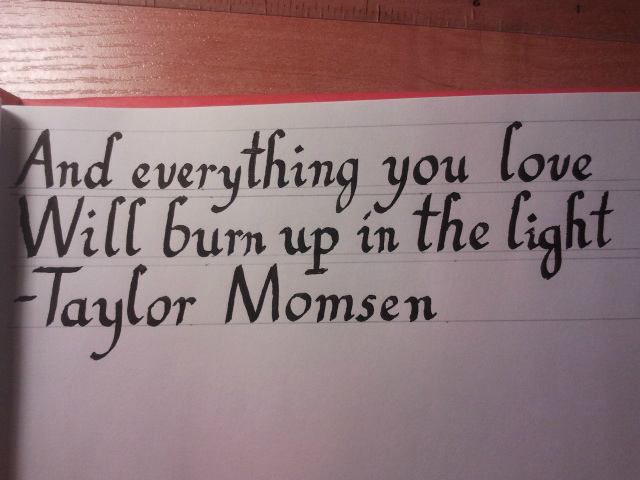 And everything you love
Will burn up in the light
-Taylor Momsen